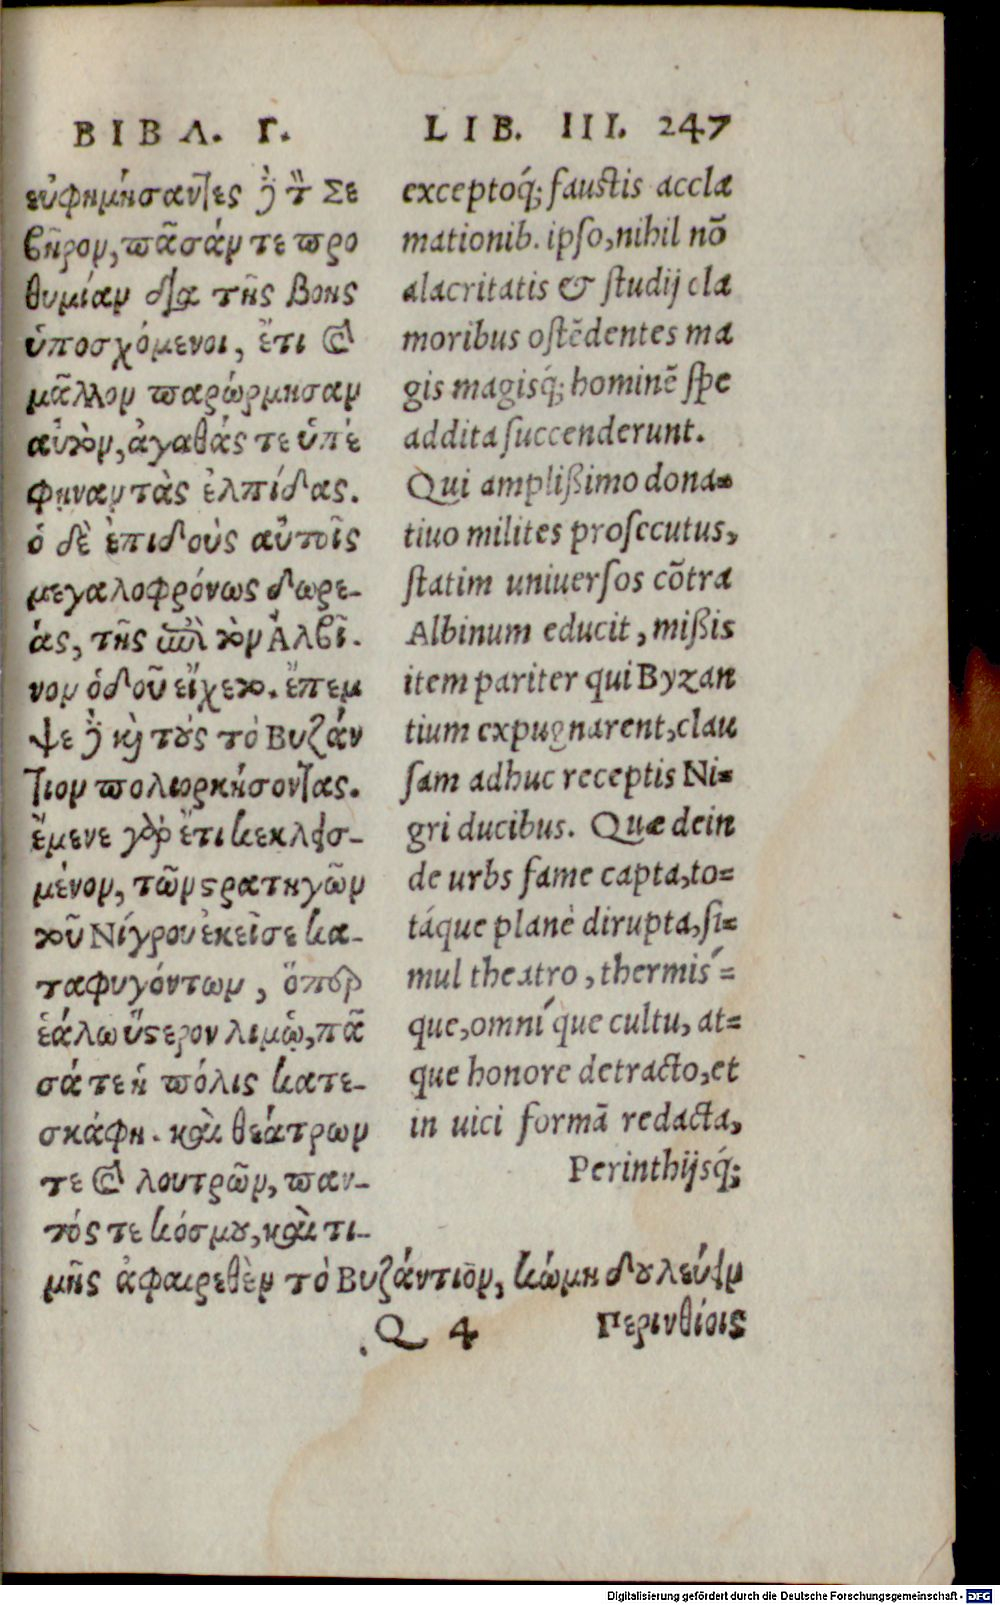 ΒΙΒΛ. Γ.
εὐφημήσαντες δὲ τὸν Σε
βῆρον, πᾶσάν τε προ
θυμίαν διὰ τῆς βοῆς
ὑποσχόμενοι, ἔτι καὶ
μᾶλλον παρώρμησαν
αὐτὸν, ἀγαθάς τε ὑπέ
φηναν τὰς ἐλπίδας.
ὁ δὲ ἐπιδοὺς αὐτοῖς
μεγαλοφρόνως δωρε-
άς, τῆς ἐπὶ τὸν Ἀλβῖ-
νον ὁδοῦ εἴχετο. ἔπεμ
ψε δὲ καὶ τοὺς τὸ Βυζάν
τιον πολιορκήσοντας.
ἔμενε γὰρ ἔτι κεκλεισ-
μένον, τῶν στρατηγῶν
τοῦ Νίγρου ἐκεῖσε κα-
ταφυγόντων, ὅπερ
ἑάλω ὕστερον λιμῷ, πᾶ
σά τε ἡ πόλις κατε-
σκάφη. καὶ θεάτρων
τε καὶ λουτρῶν, παν-
τός τε κόσμου, καὶ τι-
μῆς ἀφαιρεθὲν τὸ Βυζάντιον, κώμη δουλεύειν
Περινθίοις
LIB. III. 247
exceptoq́; faustis accla
mationib. ipso, nihil nō
alacritatis & studij cla
moribus ostēdentes ma
gis magisq́; hominē spe
addita succenderunt.
Qui amplißimo dona=
tiuo milites prosecutus,
statim uniuersos cōtra
Albinum educit, mißis
item pariter qui Byzan
tium expugnarent, clau
sam adhuc receptis Ni=
gri ducibus. Quæ dein
de urbs fame capta, to=
táque planè dirupta, si=
mul theatro, thermis´=
que, omni´que cultu, at=
que honore detracto, et
in uici formā redacta,
Perinthijsq́;
Q 4
Digitalisierung gefördert durch die Deutsche Forschungsgemeinschaft - DFG